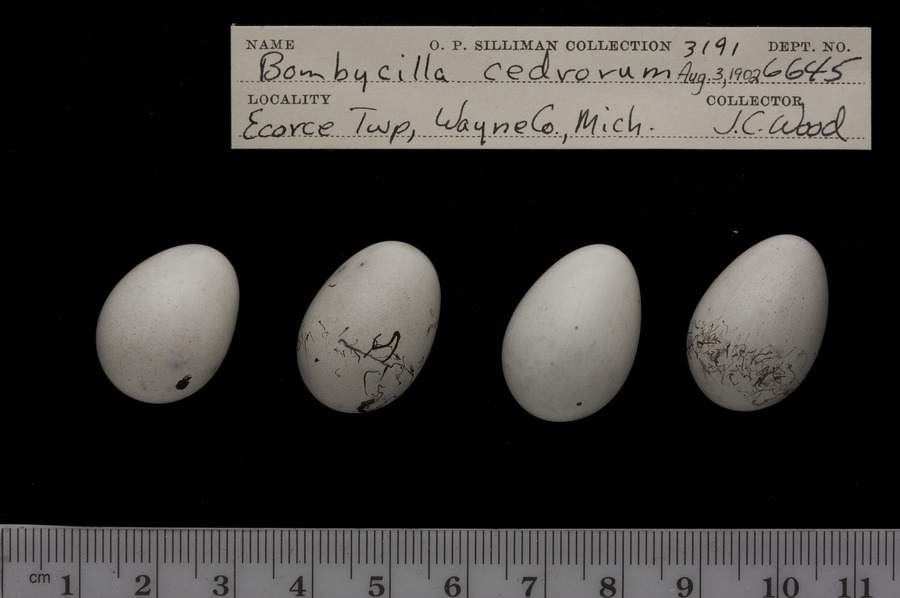 NAME O. P. SILLIMAN COLLECTION 3191 DEPT. NO.
Bombycilla cedrorum Aug. 3, 1902 6645
LOCALITY COLLECTOR
Ecorce Twp, Wayne Co., Mich. J.C. Wood
cm 1 2 3 4 5 6 7 8 9 10 11